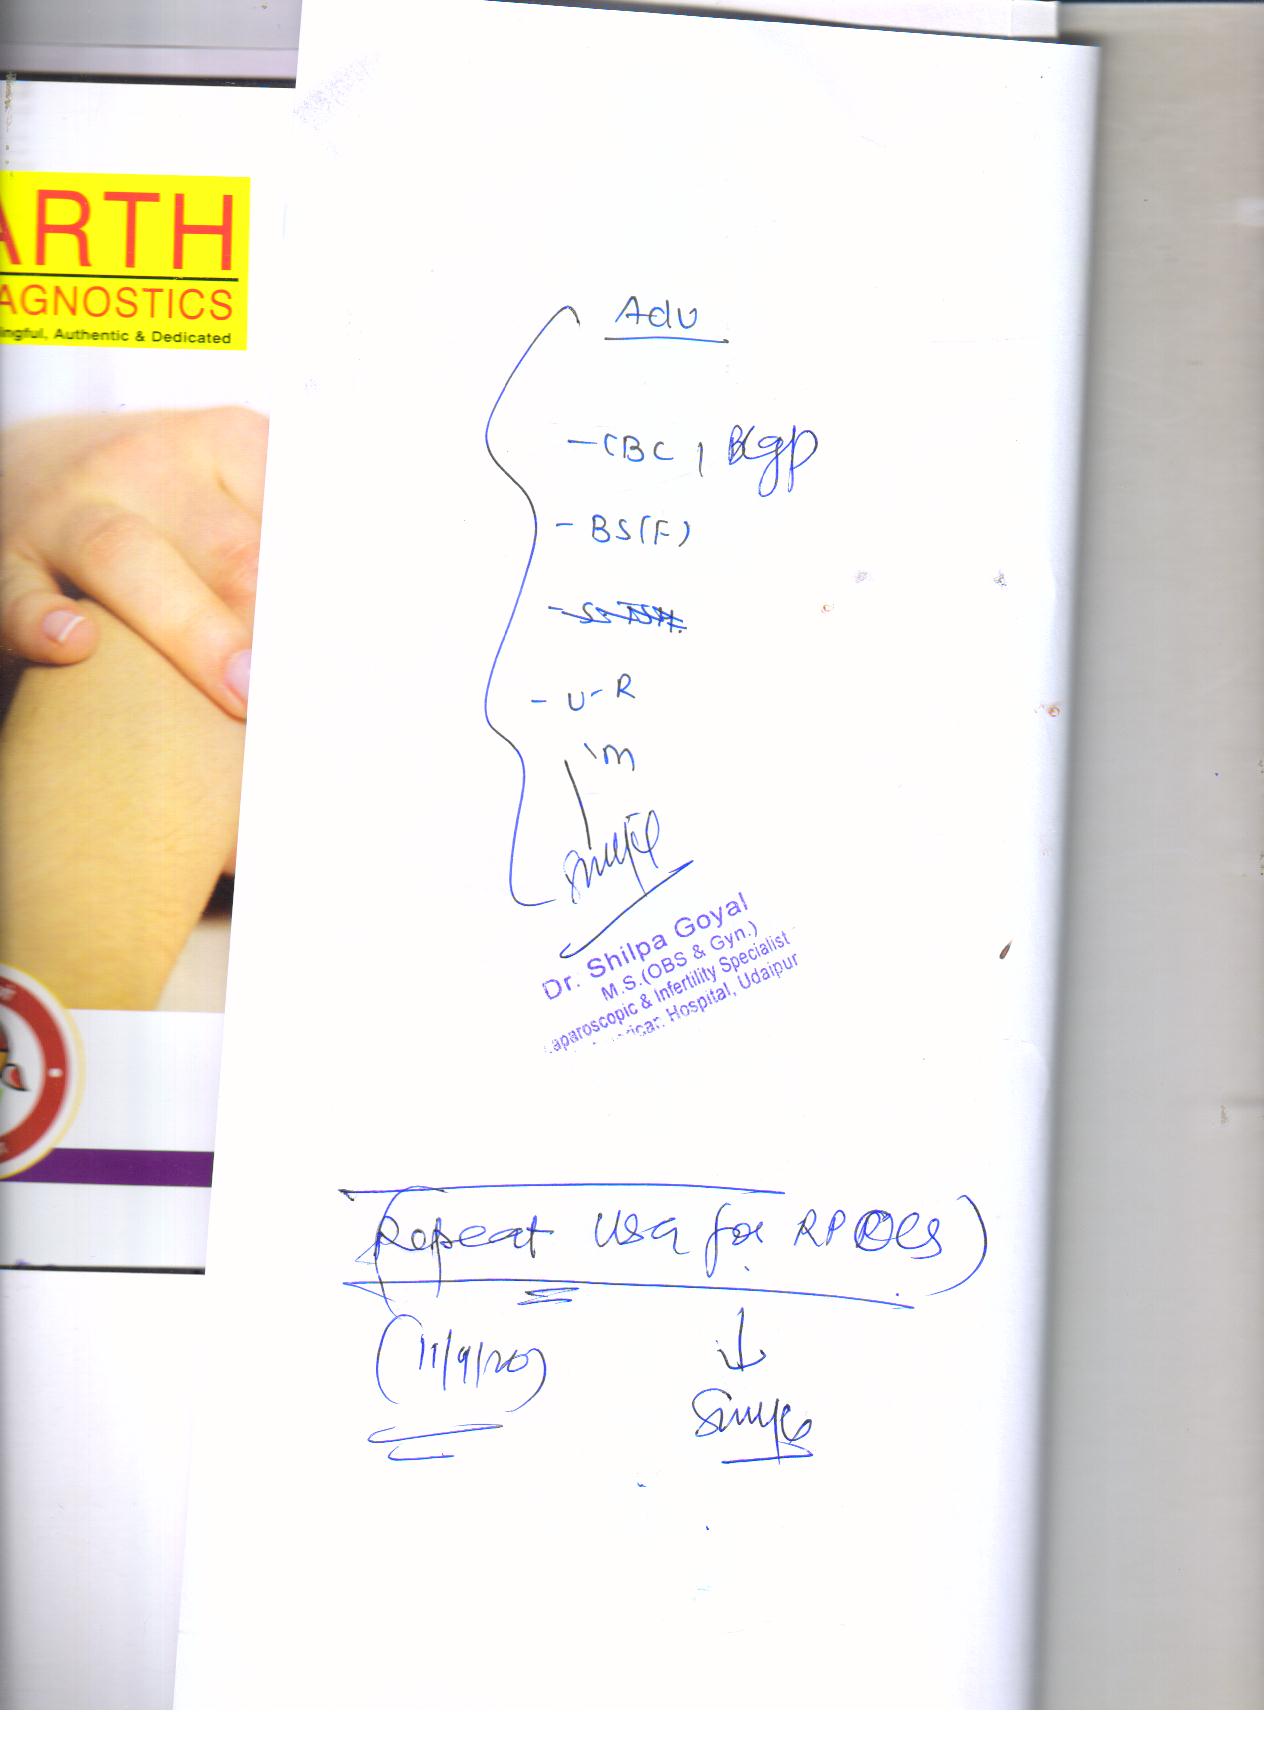 ARTH
AGNOSTICS
ingful, Authentic & Dedicated
Adv
- CBC, Bgp
- BS(F)
- S. TSH.
- U-R
\m
Dr. Shilpa Goyal
M.S.(OBS & Gyn.)
aparoscopic & Infertility Specialist
rican Hospital, Udaipur
(Repeat USG for RPOCS)
(11/9/20)